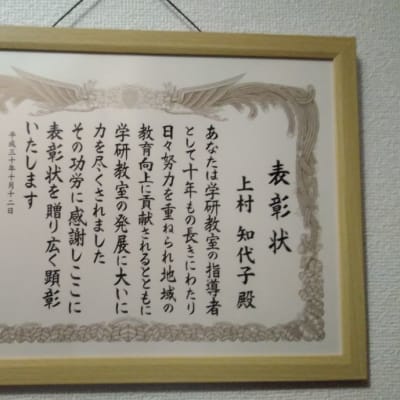 表彰状
上村 知代子 殿
あなたは学研教室の指導者
として十年もの長きにわたり
日々努力を重ねられ地域の
教育向上に貢献されるとともに
学研教室の発展に大いに
力を尽くされました
その功労に感謝しここに
表彰状を贈り広く顕彰
いたします
平成三十年十月十二日